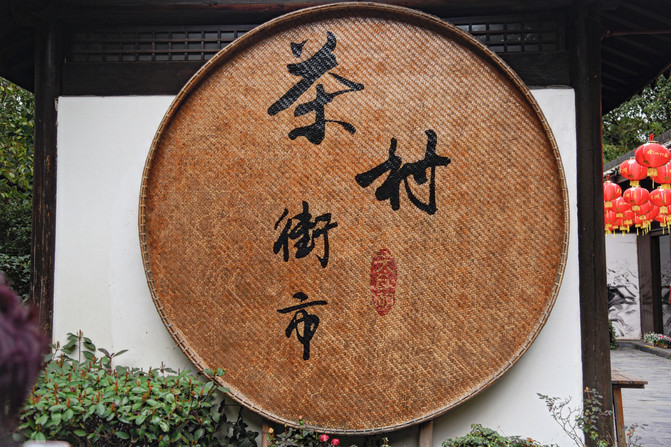 茶村
街市